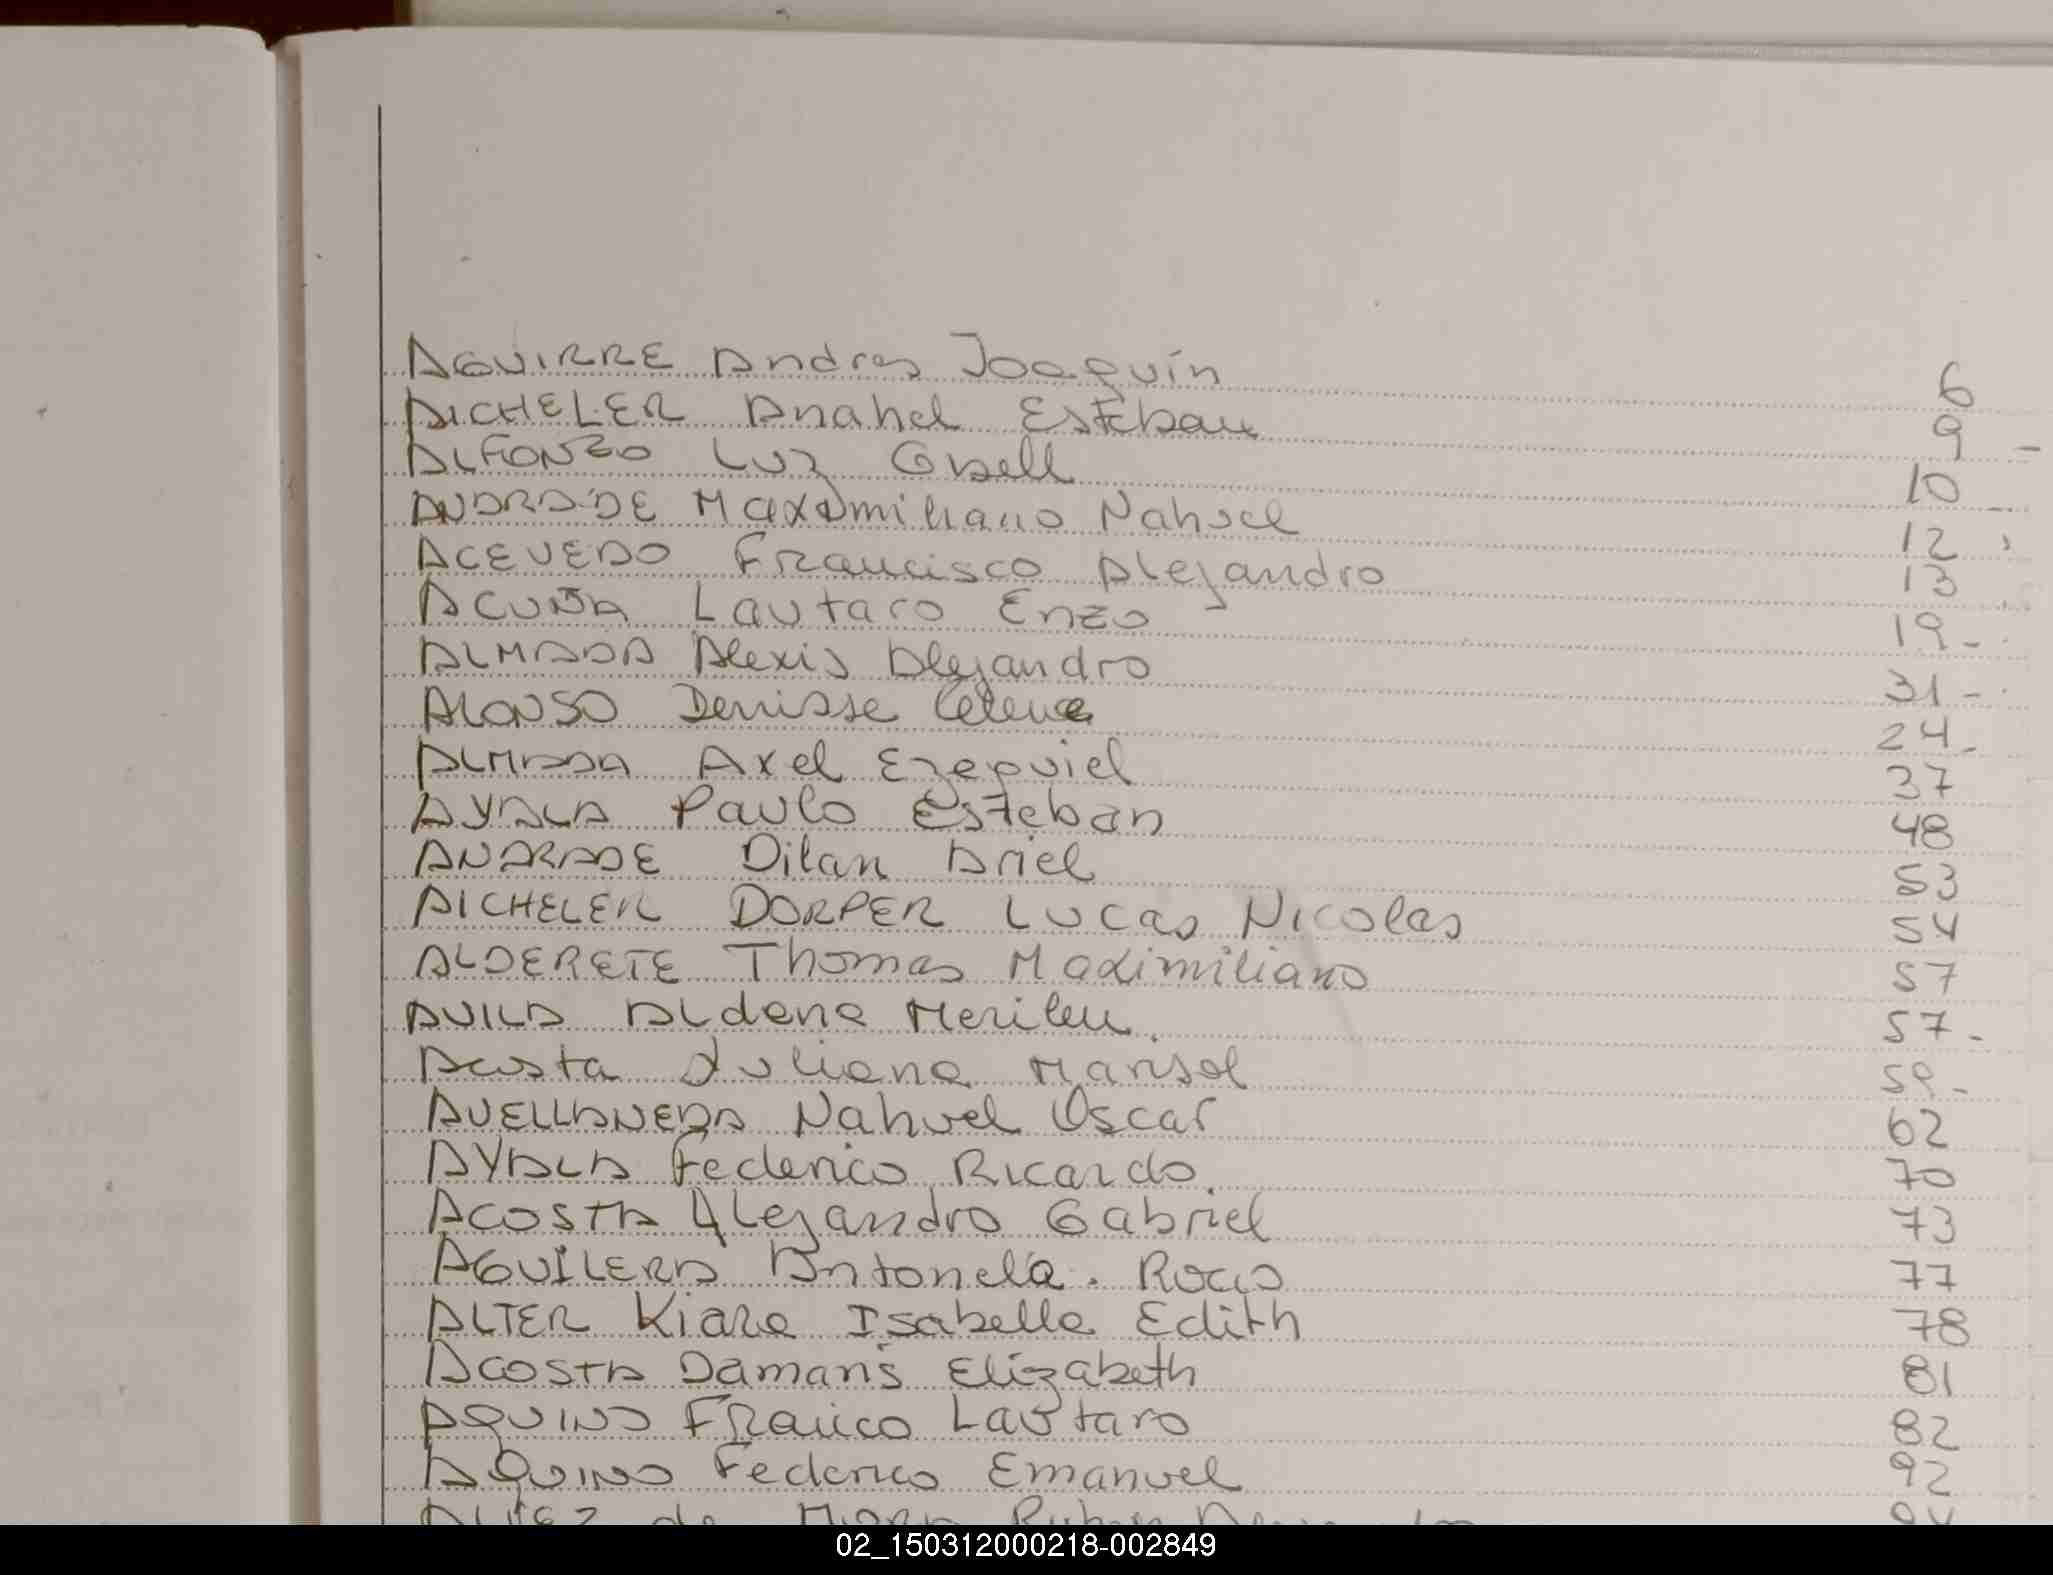 AGUIRRE Andres Joaquín 6
AICHELER Anahel Esteban 9 -
ALFONZO Luz Gisell 10
ANDRADE Maximiliano Nahuel 12
ACEVEDO Francisco Alejandro 13
ACUÑA Lautaro Enzo 19-
ALMADA Alexis Alejandro 31-
ALONSO Denisse Celene 24-
ALMADA Axel Ezequiel 37
AYALA Paulo Esteban 48
ANDRADE Dilan Ariel 53
AICHELER DORPER Lucas Nicolas 54
ALDERETE Thomas Maximiliano 57
AVILA Aldana 57-
Acosta Juliana Marisol 59-
AVELLANEDA Nahuel Oscar 62
AYALA Federico Ricardo 70
ACOSTA Alejandro Gabriel 73
AGUILERA Antonela. Rocio 77
ALTER Kiara Isabella Edith 78
ACOSTA Damaris Elizabeth 81
AQUINO Franco Lautaro 82
AQUINO Federico Emanuel 92
02_150312000218-002849